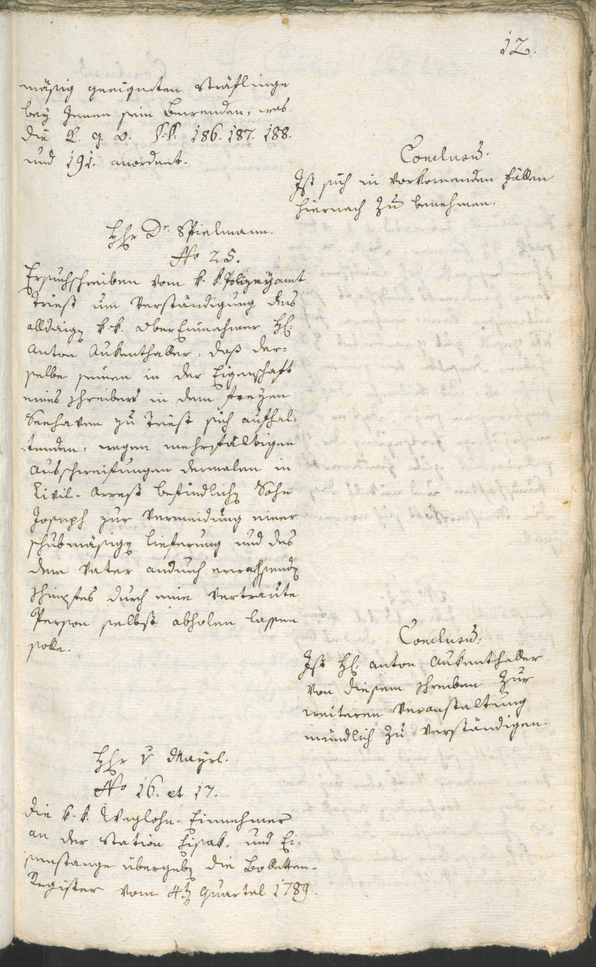 12.
mäßig geeigneten Sträflinge
bey Jnnen sein Bewenden, was
die K. g. O. §.§. 186. 187. 188.
und 191. anordnet.
Conclusū.
Jst sich in vorkomenden Fällen
hiernach zu benehmen.
Hhr Dr. Spielmann.
No 25.
Ersuchschreiben vom k. k. Polizeyamt
Triest um Verständigung des
alldaigen k. k. OberEinnehmer H.
Anton Aukenthaller, daß der-
selbe seinen in der Eigenschaft
eines Schreibers in dem Freyen
Seehaven zu Triest sich aufhal-
tenden, wegen mehrfältigen
Ausschweifungen dermalen in
Civil-Arrest befindlichen Sohn
Joseph zur Vermeidung einer
schubmäßigen Lieferung und des
dem Vater andurch erwachsenden
Schimpfes durch eine vertraute
Person selbst abholen lassen
solle.
Conclusū.
Jst H. Anton Aukenthaller
von diesem Schreiben zur
weiteren Veranstaltung
mündlich zu verständigen.
Hhr v Mayrl.
No 16. et 17.
Die k. k. Weglohn-Einnehmer
an der Station Eisak- und Ei-
senstange übergeben die Bolleten-
Register vom 4ten Quartal 1789.